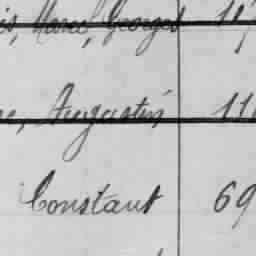 Marcel, Georges
Augustin 11
Constant 69